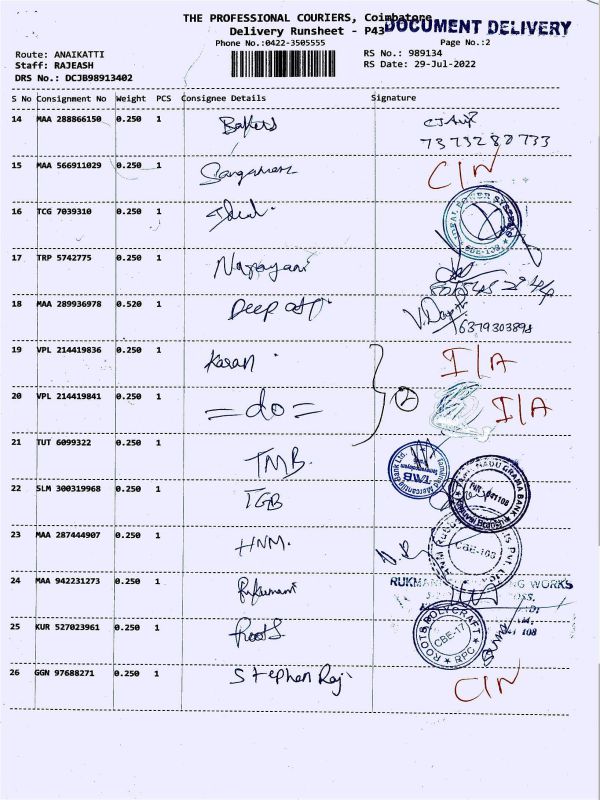 THE PROFESSIONAL COURIERS, Coimbatore
DOCUMENT DELIVERY
Delivery Runsheet - P43
Phone No.:0422-3505555
Page No.:2
Route: ANAIKATTI
RS No.: 989134
Staff: RAJEASH
RS Date: 29-Jul-2022
DRS No.: DCJB98913402
S No Consignment No Weight PCS Consignee Details Signature
14 MAA 288866150 0.250 1
7373280733
15 MAA 566911029 0.250 1 C/N
16 TCG 7039310 0.250 1 Ideal IDEAL POWER SYSTEMS
17 TRP 5742775 0.250 1 Narayani
18 MAA 289936978 0.520 1 Deep
6379303898
19 VPL 214419836 0.250 1 Karan I/A
20 VPL 214419841 0.250 1 =do= 2 I/A
21 TUT 6099322 0.250 1 TMB. Tamilnad Mercantile Bank Ltd TMB
22 SLM 300319968 0.250 1 TGB TAMIL NADU GRAMA BANK 641108
23 MAA 287444907 0.250 1 HNM. PVT. LTD
24 MAA 942231273 0.250 1 Rukumani WORKS
25 KUR 527023961 0.250 1 Roots ROOTS POLYCRAFT CBE-17 RPC
641 108
26 GGN 97688271 0.250 1 Stephen Raj C/N